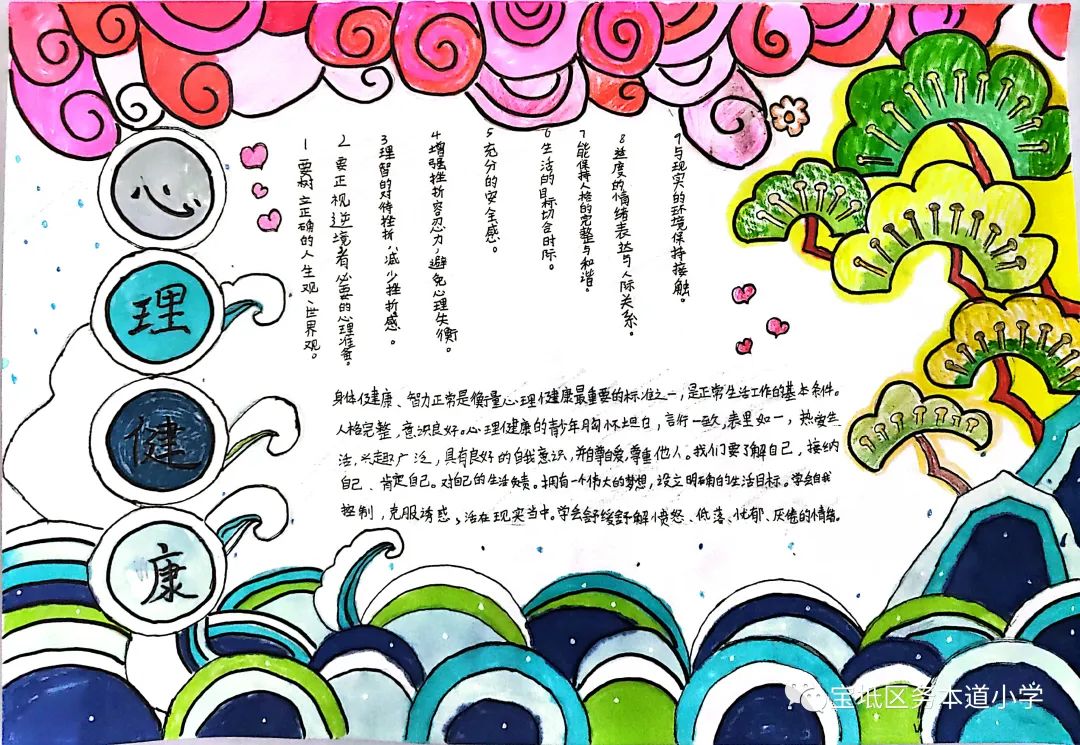 心
理
健
康
1 要树立正确的人生观、世界观。
2 要正视逆境者必要的心理准备。
3 理智的对待挫折,减少挫折感。
4 增强挫折容忍力,避免心理失衡。
5 充分的安全感。
6 生活的目标切合时际。
7 能保持人格的完整与和谐。
8 适度的情绪表达与人际关系。
9 与现实的环境保持接触。
身体健康、智力正常是衡量心理健康最重要的标准之一,是正常生活工作的基本条件。
人格完整,意识良好。心理健康的青少年胸怀坦白,言行一致,表里如一,热爱生
活,兴趣广泛,具有良好的自我意识,并自尊自爱,尊重他人。我们要了解自己,接纳
自己、肯定自己。对自己的生活负责。拥有一个伟大的梦想,设立明确的生活目标。学会自我
控制,克服诱惑,活在现实当中。学会舒缓舒解愤怒、低落、忧郁、厌倦的情绪。
宝坻区务本道小学